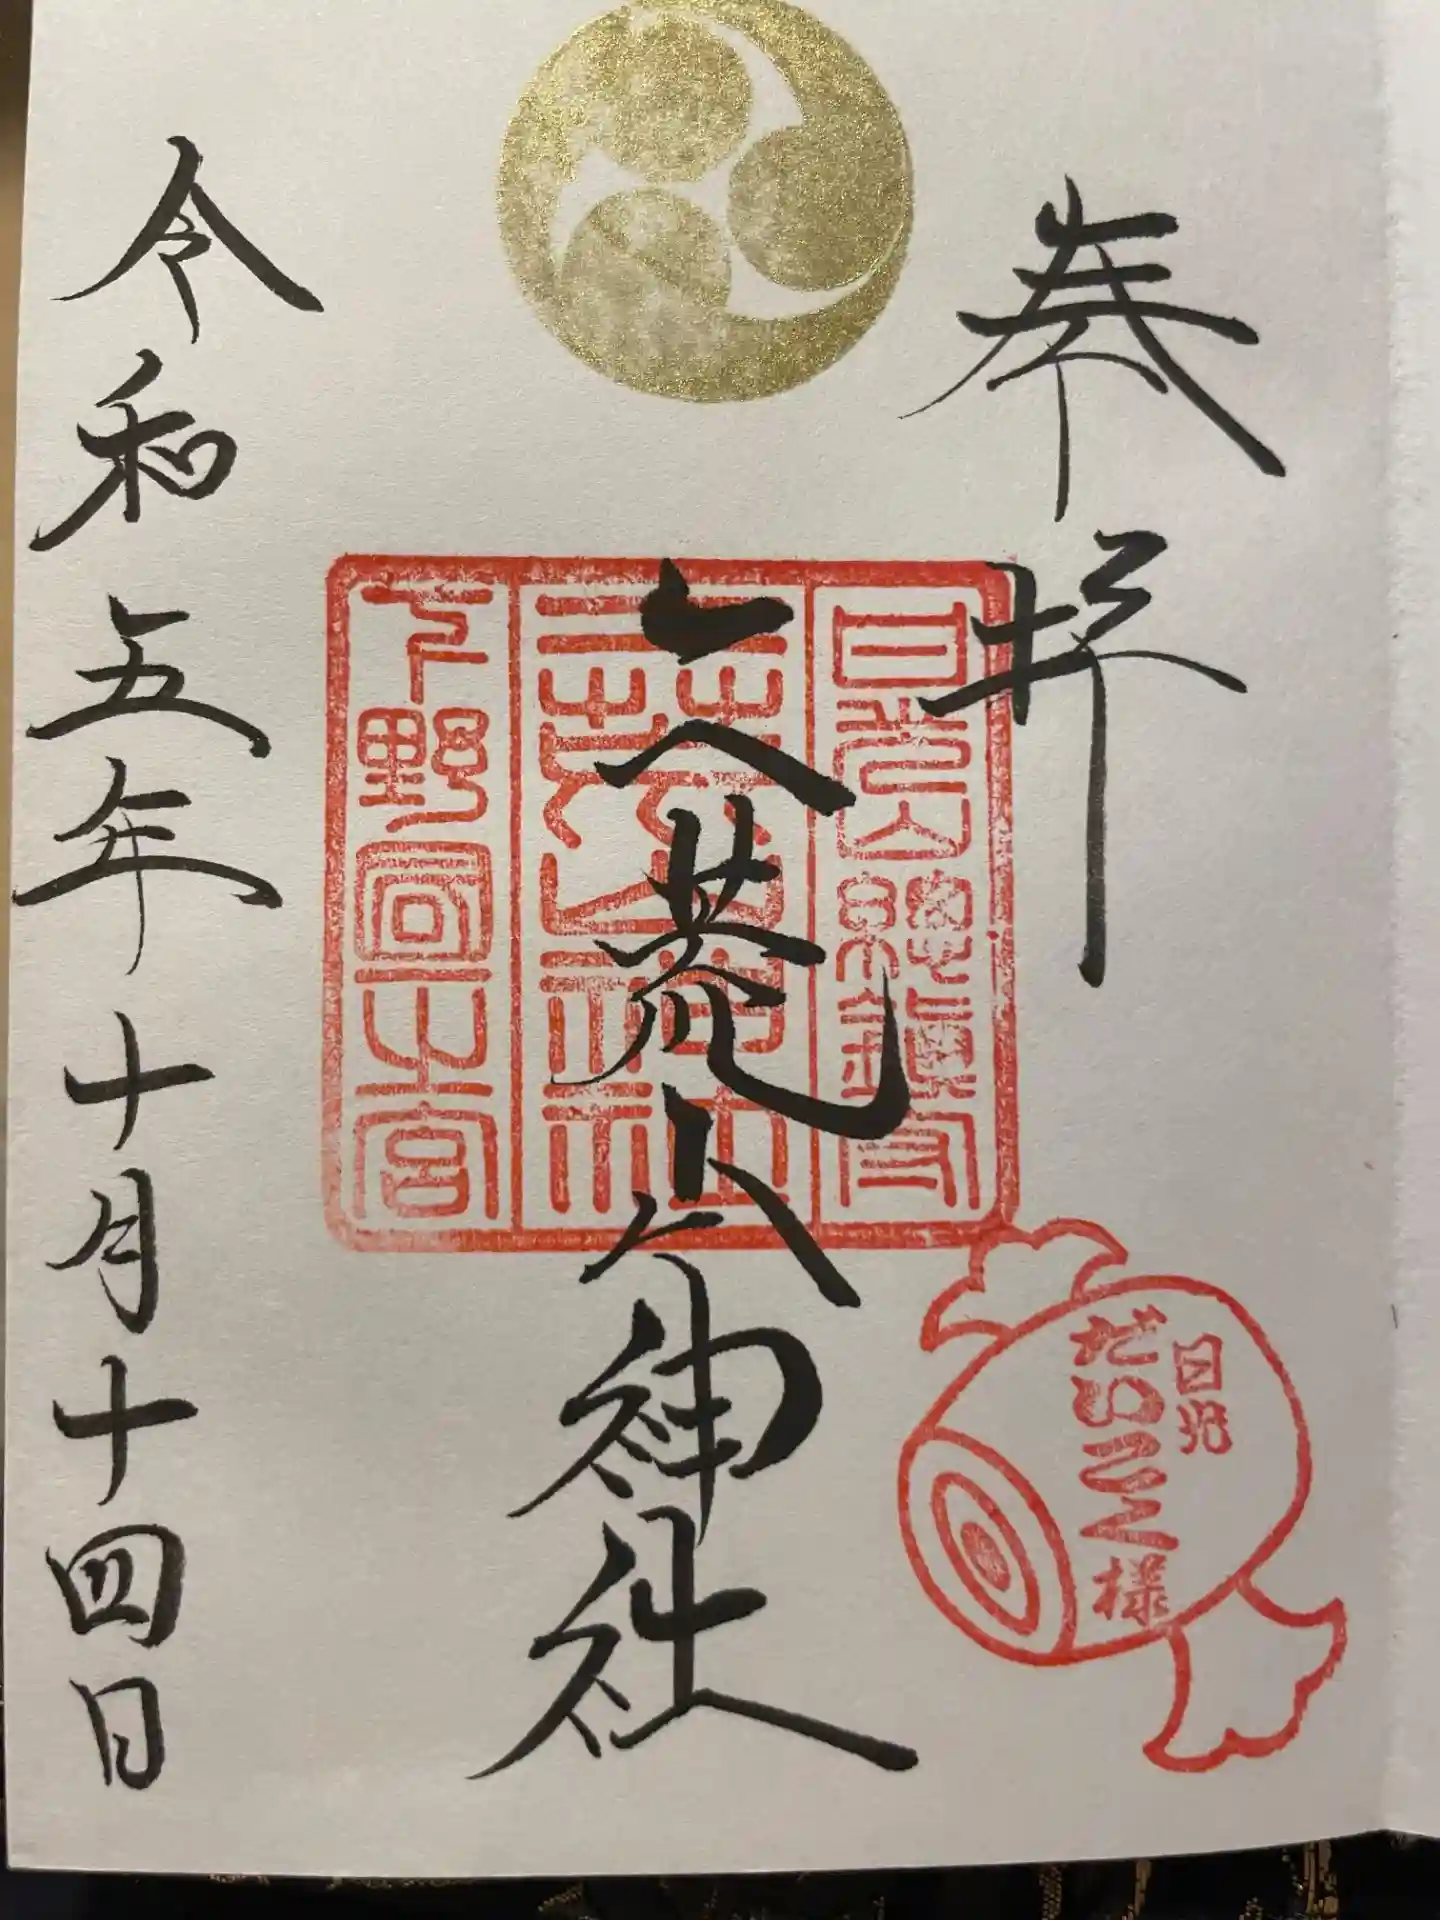 奉拝
日光山總鎮守
二荒山神社
下野国一之宮
二荒山神社
日光
だいこく様
令和五年十月十四日